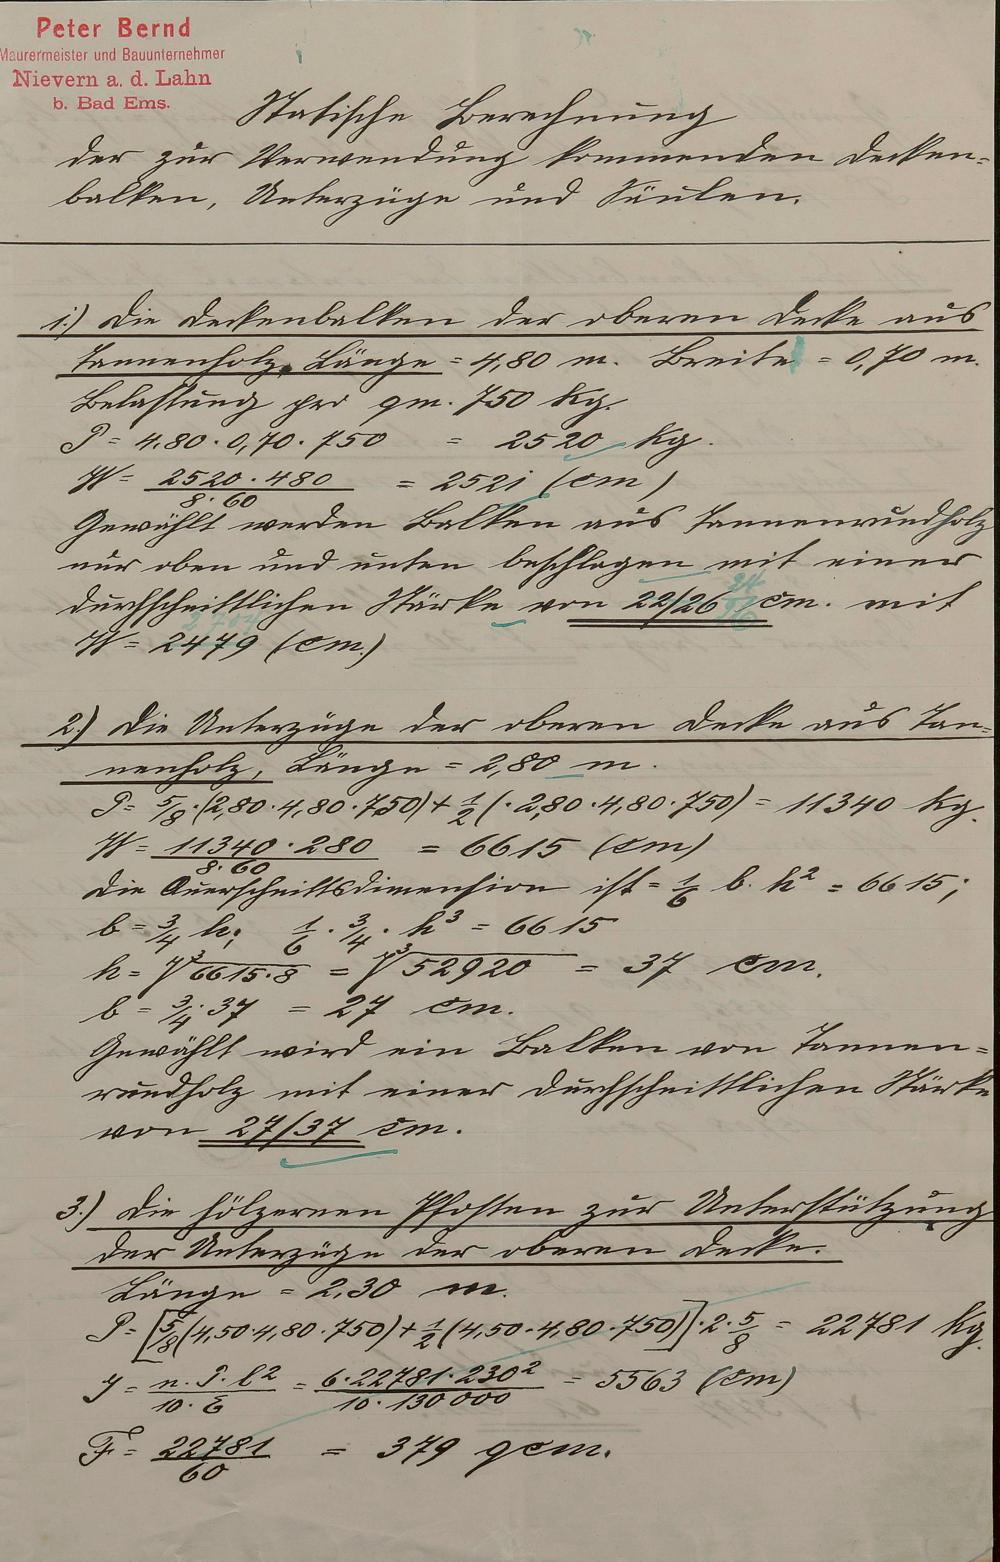 Peter Bernd
Maurermeister und Bauunternehmer
Nievern a. d. Lahn
b. Bad Ems.
Statische Berechnung
der zur Verwendung kommenden Decken-
balken, Unterzüge und Säulen.
1.) Die Deckenbalken der oberen Decke aus
Tannenholz, Länge = 4,80 m. Breite = 0,70 m.
Belastung pro qm. 750 Kg.
P = 4,80 · 0,70 · 750 = 2520 Kg.
W = 2520 · 480 / 8 · 60 = 2521 (cm)
Gewählt werden Balken aus Tannenrundholz
nur oben und unten beschlagen mit einer
24/26
durchschnittlichen Stärke von 22/26 cm. mit
2704
W = 2479 (cm.)
2.) Die Unterzüge der oberen Decke aus Tan-
nenholz, Länge = 2,80 m.
P = 5/8 · (2,80 · 4,80 · 750) + 1/2 ( · 2,80 · 4,80 · 750) = 11340 Kg.
W = 11340 · 280 / 8 · 60 = 6615 (cm)
Die Querschnittsdimension ist = 1/6 b · h² = 6615;
b = 3/4 h; 1/6 · 3/4 · h³ = 6615
h = ³√6615 · 8 = ³√52920 = 37 cm.
b = 3/4 · 37 = 27 cm.
Gewählt wird ein Balken von Tannen-
rundholz mit einer durchschnittlichen Stärke
von 27/37 cm.
3.) Die hölzernen Pfosten zur Unterstützung
der Unterzüge der oberen Decke.
Länge = 2,30 m.
P = [5/8 (4,50 · 4,80 · 750) + 1/2 (4,50 · 4,80 · 750)] · 2 · 5/8 = 22781 Kg.
J = n · P · l² / 10 · E = 6 · 22781 · 230² / 10 · 130000 = 5563 (cm)
F = 22781 / 60 = 379 qcm.